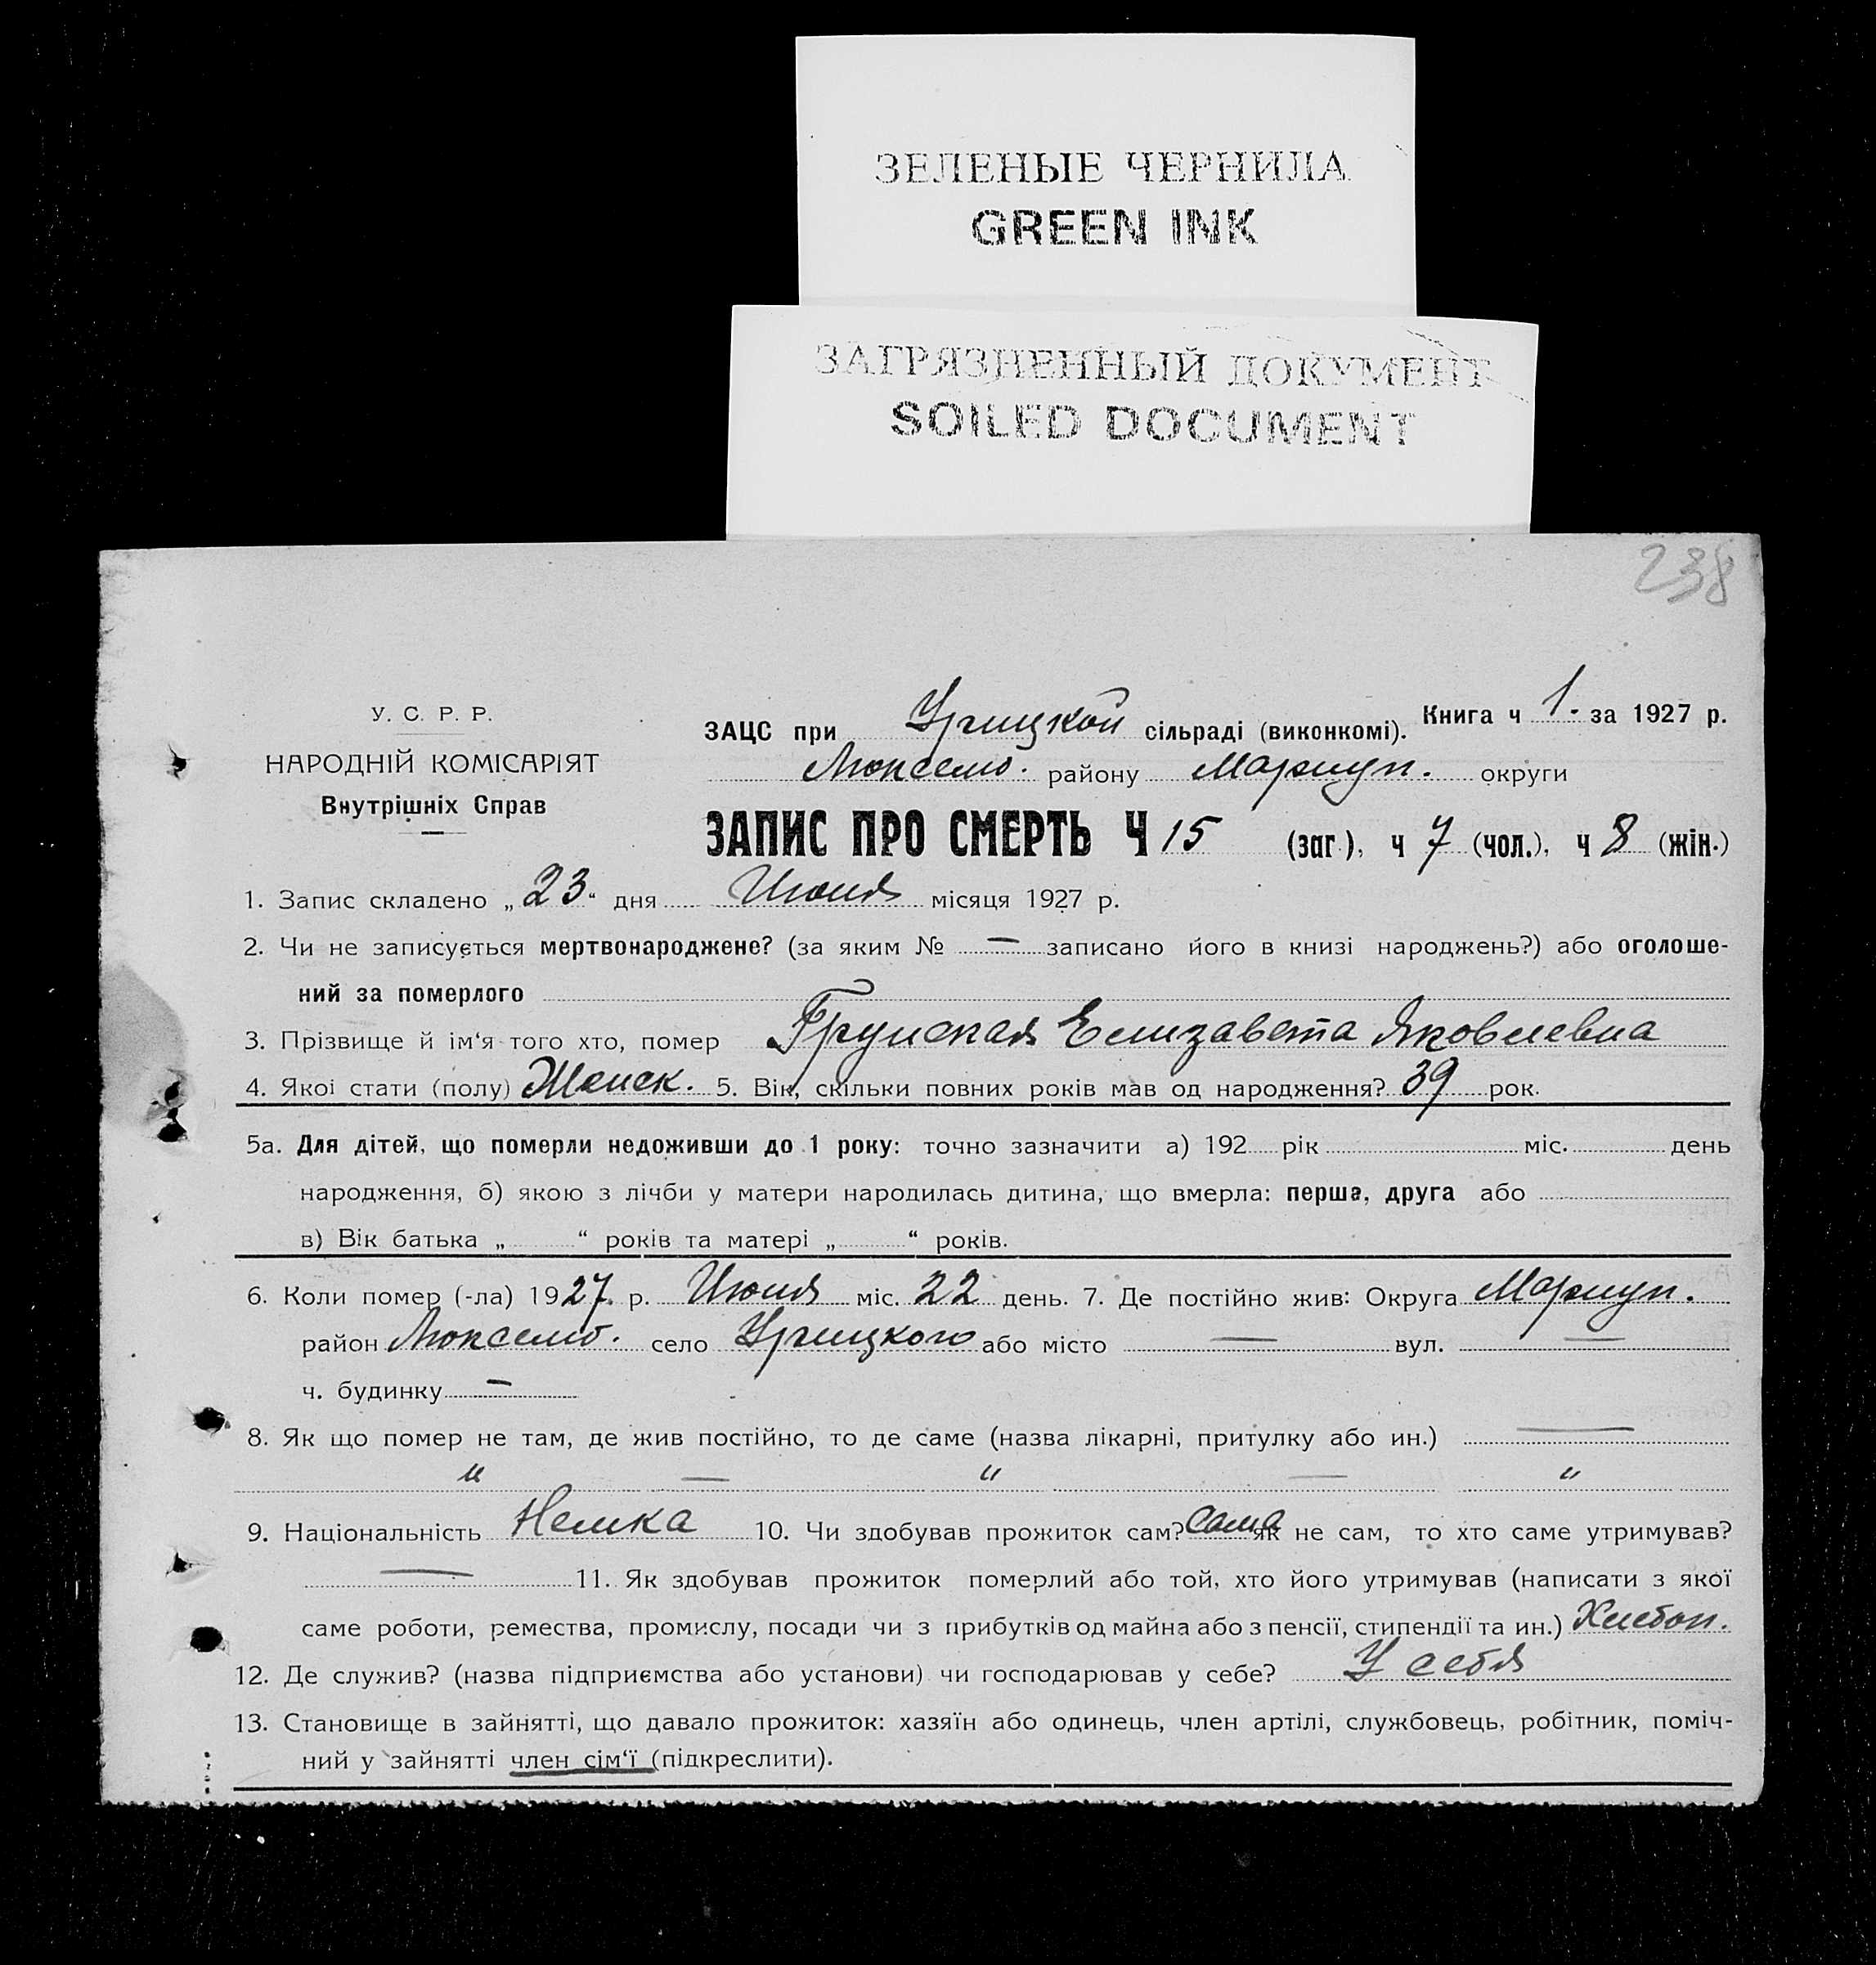 ЗЕЛЕНЫЕ ЧЕРНИЛА
GREEN INK
ЗАГРЯЗНЕННЫЙ ДОКУМЕНТ
SOILED DOCUMENT
238
У. С. Р. Р.
НАРОДНІЙ КОМІСАРІЯТ
Внутрішніх Справ
ЗАЦС при Урицкой сільраді (виконкомі). Книга ч 1. за 1927 р.
Люксемб. району Мариуп. округи
ЗАПИС ПРО СМЕРТЬ Ч 15 (заг.), ч 7 (чол.), ч 8 (жін.)
1. Запис складено „23“ дня Июня місяця 1927 р.
2. Чи не записується мертвонароджене? (за яким № — записано його в книзі народжень?) або оголоше-
ний за померлого
3. Прізвище й ім‘я того хто, помер Елизавета Яковлевна
4. Якої стати (полу) Женск. 5. Вік, скільки повних років мав од народження? 39 рок.
5а. Для дітей, що померли недоживши до 1 року: точно зазначити а) 192 рік міс. день
народження, б) якою з лічби у матери народилась дитина, що вмерла: перша, друга або
в) Вік батька „ “ років та матері „ “ років.
6. Коли помер (-ла) 1927. р. Июня міс. 22 день. 7. Де постійно жив: Округа Мариуп.
район Люксемб. село Урицкого або місто — вул. —
ч. будинку —
8. Як що помер не там, де жив постійно, то де саме (назва лікарні, притулку або ин.) —
„ — „ — „
9. Національність Немка 10. Чи здобував прожиток сам? Сама як не сам, то хто саме утримував?
— 11. Як здобував прожиток померлий або той, хто його утримував (написати з якої
саме роботи, ремества, промислу, посади чи з прибутків од майна або з пенсії, стипендії та ин.) Хлебоп.
12. Де служив? (назва підприємства або установи) чи господарював у себе? У себя
13. Становище в зайнятті, що давало прожиток: хазяїн або одинець, член артілі, службовець, робітник, поміч-
ний у зайнятті член сім‘ї (підкреслити).